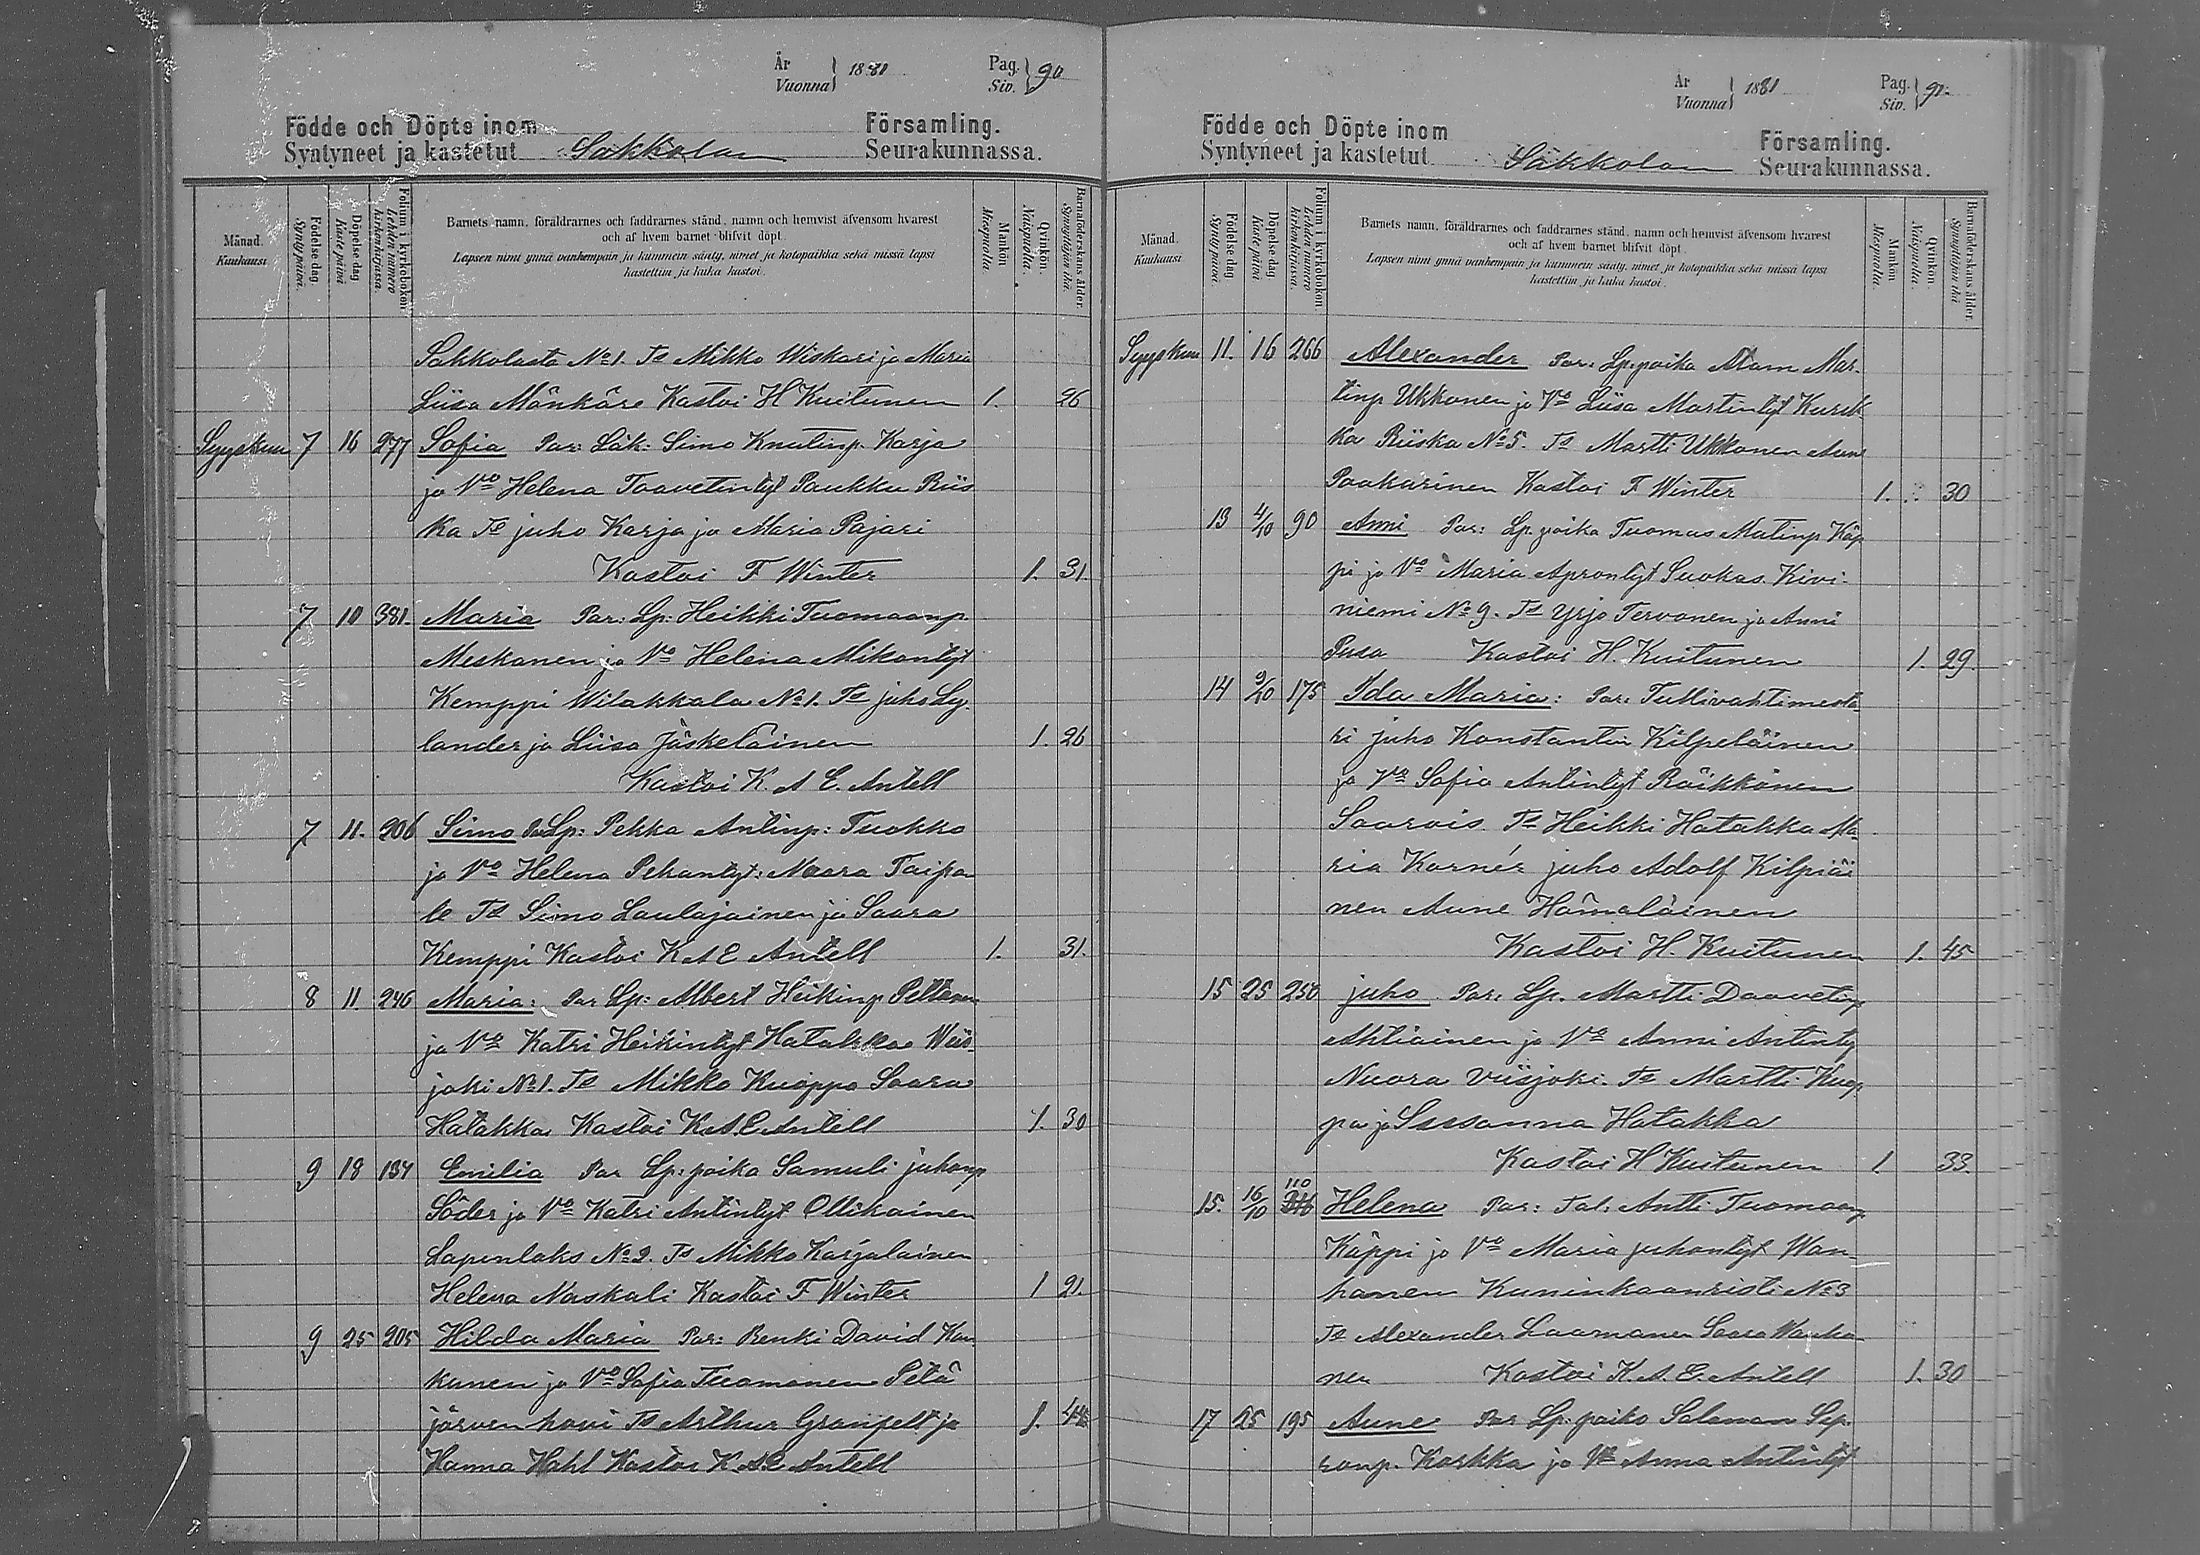 År
Vuonna } 1881
Pag.
Siv. } 90
Födde och Döpte inom
Syntyneet ja kastetut Sakkolan
Församling.
Seurakunnassa.
Månad.
Kuukausi
Födelse dag.
Syntypäivä.
Döpelse dag
Kaste päivä
Folium i kyrkobokon.
Lehden numero
kirkonkirjassa.
Barnets namn, föräldrarnes och faddrarnes stånd, namn och hemvist äfvensom hvarest
och af hvem barnet blifvit döpt.
Lapsen nimi ynnä vanhempain ja kummein sääty, nimet ja kotopaikka sekä missä lapsi
kastettiin ja kuka kastoi.
Mankön
Miespuolia
Qvinkön.
Naispuolia.
Barnaföderskans ålder.
Synnyttäjän ikä.
Sakkolasta No 1. Ts Mikko Wiskari ja Maria
Liisa Mönkäre Kastoi H Kuitunen 1. 26
Syyskuu 7 16 277 Sofia Par: Läk: Simo Knutinp. Karja
ja Vo Helena Taavetintyt Paukku Riis
ka Ts juho Karja ja Maria Pajari
Kastoi F Winter 1. 31.
7 10 381. Maria Par: Lp: Heikki Tuomaanp.
Meskanen ja Vo Helena Mikontyt
Kemppi Wilakkala No 1. Ts juho Ly
lander ja Liisa Jäskeläinen 1. 26
Kastoi K. A E. Antell
7 11. 206 Simo Par Lp: Pekka Antinp: Tuokko
ja Vo Helena Pekantyt: Naara Taipa
le Ts Simo Laulajainen ja Saara
Kemppi Kastoi K A E Antell 1. 31.
8 11. 246 Maria: Par Lp: Albert Heikinp Peltonen
ja Vo Katri Heikintyt Hatakka Wiis
joki No 1. Ts Mikko Kuoppa Saara
Hatakka Kastoi K. A. E Antell 1. 30
9 18 134 Emilia Par Lp: poika Samuli juhonp
Söder ja Vo Katri Antintyt Ollikainen
Lapenlaks No 2. Ts Mikko Karjalainen
Helena Naskali Kastoi F Winter 1 21.
9 25 205 Hilda Maria Par: Renki David Kau
kunen ja Vo Sofia Tuomanen Petä
järven hovi Ts Arthur Granfelt ja 1. 44
Hanna Hahl Kastoi K A E Antell
År
Vuonna } 1881
Pag.
Siv. } 91.
Födde och Döpte inom
Syntyneet ja kastetut Sakkolan
Församling.
Seurakunnassa.
Månad.
Kuukausi
Födelse dag.
Syntypäivä.
Döpelse dag.
Kaste päivä
Folium i kyrkobokon.
Lehden numero
kirkonkirjassa.
Barnets namn, föräldrarnes och faddrarnes stånd, namn och hemvist äfvensom hvarest
och af hvem barnet blifvit döpt.
Lapsen nimi ynnä vanhempain ja kummein sääty, nimet ja kotopaikka sekä missä lapsi
kastettiin ja kuka kastoi.
Mankön
Miespuolia.
Qvinkön.
Naispuolia.
Barnaföderskans ålder.
Synnyttäjän ikä
Syyskuu 11. 16 266 Alexander Par: Lp: poika Atam Mar
tinp Ukkonen ja Vo Liisa Martintyt Kurik
ka Riiska No 5. Ts Martti Ukkonen Anni
Paakarinen Kastoi F Winter 1. 30
13 4/10 90 Anni Par: Lp. poika Tuomas Matinp Käp
pi ja Vo Maria Aprontyt Suokas Kivi
niemi No 9. Ts Yrjo Tervonen ja Anni
Pusa Kastoi H. Kuitunen 1. 29.
14 9/10 175 Ida Maria: Par: Tullivahtimesta
ri juho Konstantin Kilpeläinen
ja Vo Sofia Antintyt Räikkönen
Saarois. Ts Heikki Hatakka Ma
ria Kornér juho Adolf Kilpiäi
nen Aune Hämäläinen
Kastoi H. Kuitunen 1. 45
15 25 250 juho Par: Lp. Martti Daavetinp
Ahtiainen ja Vo Anni Antinty
Nuora Viisjoki. Ts Martti Kuop
pa ja Sussanna Hatakka
Kastoi H Kuitunen 1. 33.
15. 16/10 110 Helena Par: Tal: Antti Tuomaanp
Käppi ja Vo Maria juhontyt Wan
hanen Kuninkaanristi No 3
Ts Alexander Laamanen Saara Wanha
nen Kastoi K. A. E. Antell 1. 30
17 25 195 Aune Par Lp. poika Salaman Sip
ronp. Karkka ja Vo Anna Antintyt